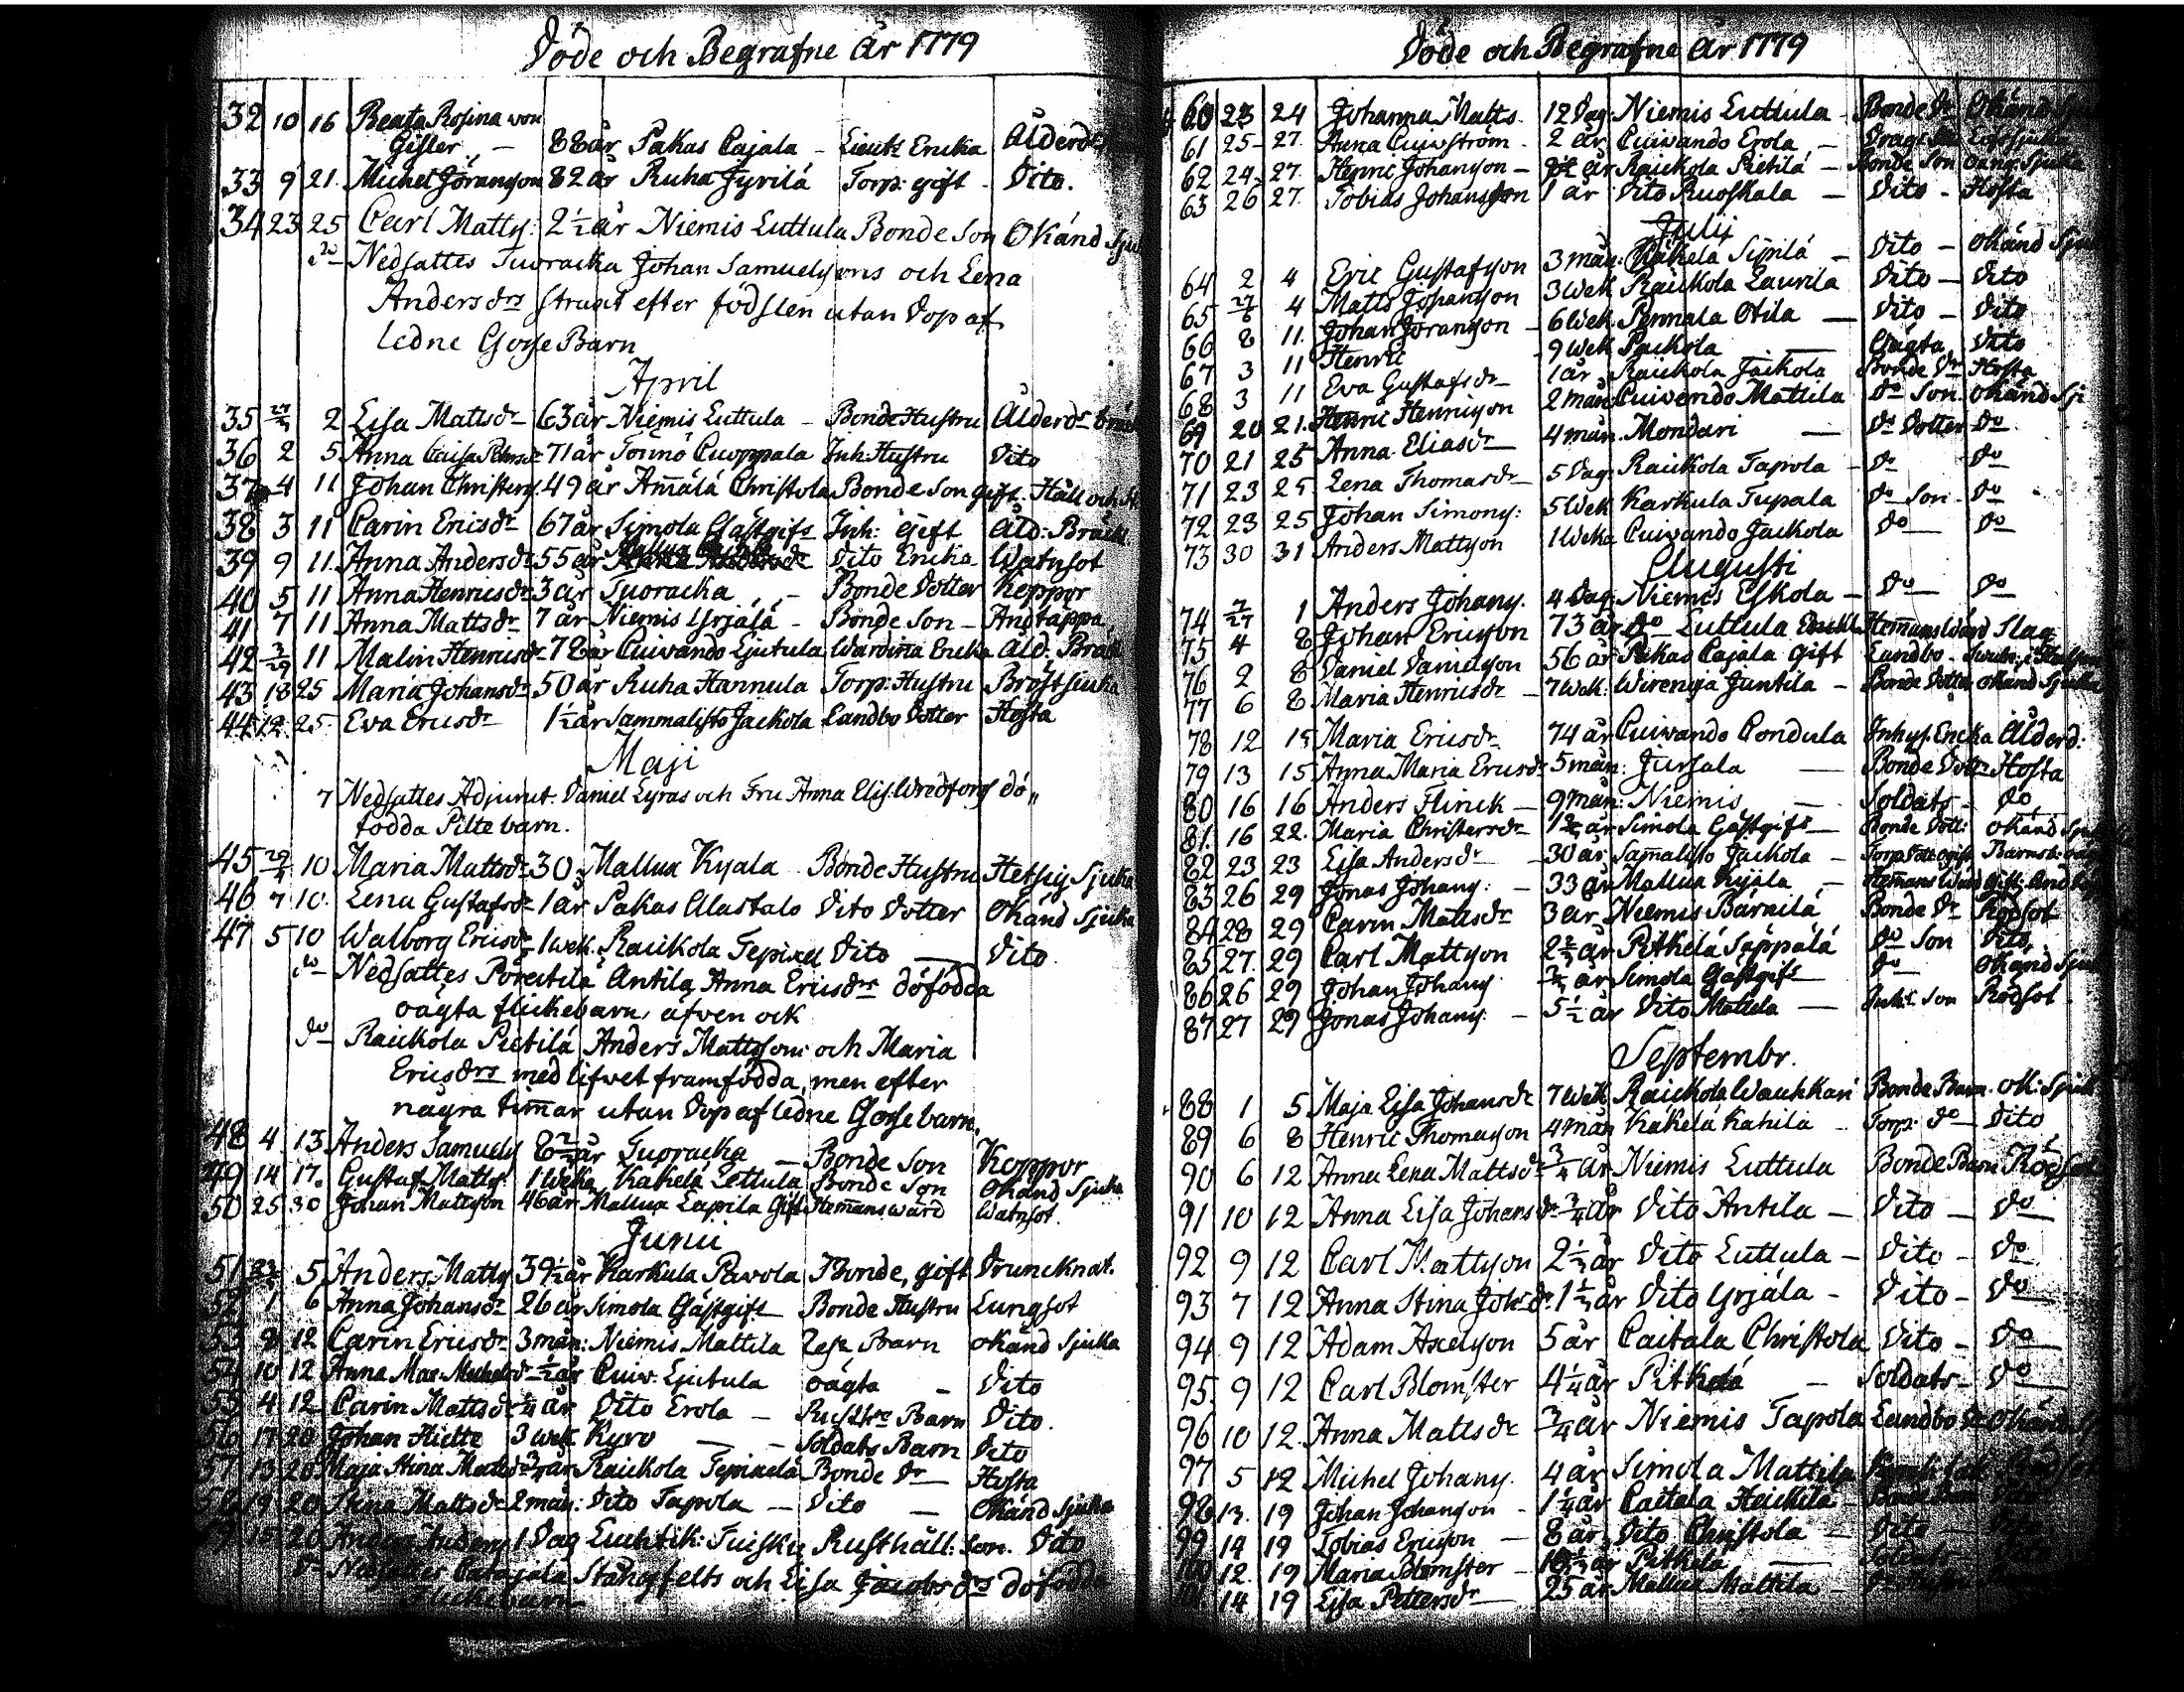 Döde och Begrafne År 1779
32 10 16 Beata Rosina von
Gisler, — 88 år Sakas Cajala - Lieuts Encka Ålderd
33 9 21. Michel Göransson 82 år Ruha Jyrilä Torp: gift - Dito.
34 23 25 Carl Matts: 2 1/2 år Niemis Luttula Bonde Son Okänd Sju
do Nedsattes Tuoracka Johan Samuelssons och Lena
Andersdrs straxt efter födslen utan Dop af
ledne Gosse Barn
April
35 27/3 2 Lisa Mattsdr 63 år Niemis Luttula - Bonde Hustru Ålderds bräck
36 2 5 Anna Caisa Pehrsdr 71 år Torino Cuoppala Inh: Hustru Dito
37 4 11 Johan Christers. 49 år Am̄älä Christola Bonde Son gift. Håll och St
38 3 11 Carin Ericsdr 67 år Simola Gästgifs Inh: Gift Åld: Bräckl
39 9 11. Anna Andersdr 55 år Mallux Dito Encka Watnsot
40 5 11 Anna Henricsdr 3 år Tuoracka - Bonde Dotter Koppor
41 7 11 Anna Mattsdr 7 år Niemis Yrjälä - Bonde Son - Andtäppa
42 3/29 11 Malin Henricsdr 78 år Cuivando Ljutula Encka Åld. Bräckl
43 18 25 Maria Johansdr 50 år Ruha Hannula Torp: Hustru Bröstsiuka
44 19 25. Eva Ericsdr 1 1/2 år Sammalisto Jackola Landbo Dotter Hosta
Maji
7 Nedsattes Adjunct. Daniel Lyras och Fru Anna Elis. Wredfors dö„
födda Pilte barn.
45 29/4 10 Maria Mattsdr 30. Mallux Kyala Bonde Hustru Hetsig Sjuka
46 7 10. Lena Gustafsdr 1 år Sakas Alastalo Dito Dotter Okänd Sjuka
47 5 10 Walborg Ericsdr 1 wek. Raickola Tepixel Dito — Dito.
do Nedsattes Porentilä Antila Anna Ericsdrs döfödda
oägta flickebarn, äfven ock
do Raickola Pietilä Anders Mattssons och Maria
Ericsdrs med lifwet framfödda, men efter
några tim̄ar utan Dop afledne Gosse barn.
48 4 13 Anders Samuels 8 år Tuoracka - Bonde Son Koppor
49 14 17. Gustaf Matts: 1 Weka Kakelä Lettula Bonde Son Okänd Sjuka
50 25 30 Johan Mattsson 46 år Mallux Lapila Gift Hem̄answärd Watnsot.
Junii
51 5 Anders Matts 39 1/2 år Karkula Pavola Bonde, gift Druncknat.
52 1 6 Anna Johansdr 26 år Simola Gästgifs Bonde Hustru Lungsot
53 8 12 Carin Ericsdr 3 mån: Niemis Mattila Barn Okänd Sjuka
54 10 12 Anna Mar. Michelsdr 1/2 år Cuiv. Ljutula oägta - Dito
55 4 12 Carin Mattsdr år Dito Erola - Barn Dito.
56 17 20 Johan Hiette 3 wek Kyro — Soldats Barn Dito
57 13 20 Maja Stina Mattsdr år Raickola Tepixelä Bonde Dr Hosta
58 19 20 Stina Mattsdr 2 mån: Dito Tapola - Dito — Okänd Sjuka
59 15 20 Anders Anders 1 Dag Luhtik: Tuisku Rusthåll: Son. Dito
Do Nedsattes Catajala Stångfelts och Lisa Jacobsdrs döfödda
Flickebarn
Döde och Begrafne År 1779
60 23 24 Johanna Matts. 12 Dag. Niemis Luttula - Bonde Dr Okänd Sju
61 25 27. Anna Cuivström - 2 år Cuivando Erola -
62 24 27. Henric Johansson - år Raickola Pietilä - Bonde Son
63 26 27. Tobias Johansson 1 år Dito Ruoskala — Dito - Hosta
Julij
64 2 4 Eric Gustafsson 3 mån: Käkelä Sipilä - Dito - Okänd Sju
65 27/6 4 Matts Johansson 3 wek Raickola Laurila Dito - Dito
66 8 11. Johan Göransson - 6 wek. Pennala Otila — Dito - Dito
67 3 11 Henric 9 wek Paickola — Oägta Dito
68 3 11 Eva Gustafsdr 1 år Raickola Jaickola Bonde Dr Hosta
69 20 21. Henric Henricsson 2 mån Cuivando Mattila Do Son. Okänd Sj
70 21 25 Anna Eliasdr 4 mån. Mondari — Do Dotter Do
71 23 25 Lena Thomasdr 5 Dag. Raickola Tapola - Do Do
72 23 25 Johan Simons: 5 Wek Karkula Tupala Do Son - Do
73 30 31 Anders Mattsson 1 Weka Cuivando Jackola Do Do
Augusti
74 7/27 1 Anders Johans. 4 Dag: Niemis Eskola - Do Do
75 4 8 Johan Ericsson 73 år Do Luttula Hem̄answärd Slag
76 2 8 Daniel Danielsson 56 år Sakas Cajala gift Landbo -
77 6 8 Maria Henricsdr - 7 Wek. Wirensjä Juntila - Bonde Dotter Okänd Sjuka
78 12 15 Maria Ericsdr 74 år Cuivando Condula Inhys. Encka Ålderd:
79 13 15 Anna Maria Ericsdr 5 mån: Jursala — Bonde Dottr Hosta
80 16 16 Anders Flinck - 9 mån: Niemis — Soldats - Do
81. 16 22. Maria Christersdr år Simola Gästgifs - Bonde Dott: Okänd Sju
82 23 23 Lisa Andersdr - 30 år Sam̄alisto Jackola -
83 26 29 Jonas Johans: - 33 år Mallux Kyala - Hem̄answärd Gift
84 28 29 Carin Mattsdr 3 år Niemis Barnilä Bonde Dr Rödsot
85 27. 29 Carl Mattsson år Pitkelä Säppälä Do Son Dito,
86 26 29 Johan Johans år Simola Gästgifs Do Okänd Sju
87 27 29 Jonas Johans: - 5 1/2 år Dito Mattila — Son Rödsot
Septembr.
88 1 5 Maja Lisa Johansdr 7 Wek Raickola Wauhkari Bonde Barn. Ok: Sjuk
89 6 8 Henric Thomasson 4 mån Käkelä Kahila - Torp. Do Dito
90 6 12 Anna Lena Mattsdr 3/4 år Niemis Luttula Bonde Barn Rödsot
91 10 12 Anna Lisa Johansdr 3/4 år Dito Antila - Dito - Do
92 9 12 Carl Mattsson 2 1/2 år Dito Luttula - Dito - Do
93 7 12 Anna Stina Johsdr. 1 1/2 år Dito Yrjälä - Dito - Do
94 9 12 Adam Axelsson 5 år Caitala Christola Dito - Do
95. 9 12 Carl Blomster 4 1/4 år Pitkelä - Soldats - Do
96 10 12. Anna Mattsdr 3/4 år Niemis Tapola Landbo Dr Okänd
97 5 12 Michel Johans. 4 år Simola Mattila
98 13. 19 Johan Johansson - 1 1/4 år Caitala Heickilä -
99 14 19 Tobias Ericsson - 8 år. Dito Christola - Dito -
100 12. 19 Maria Blomster - år Pitkelä — Soldats -
101 14 19 Lisa Pettersdr 25 år Mallux Mattila -